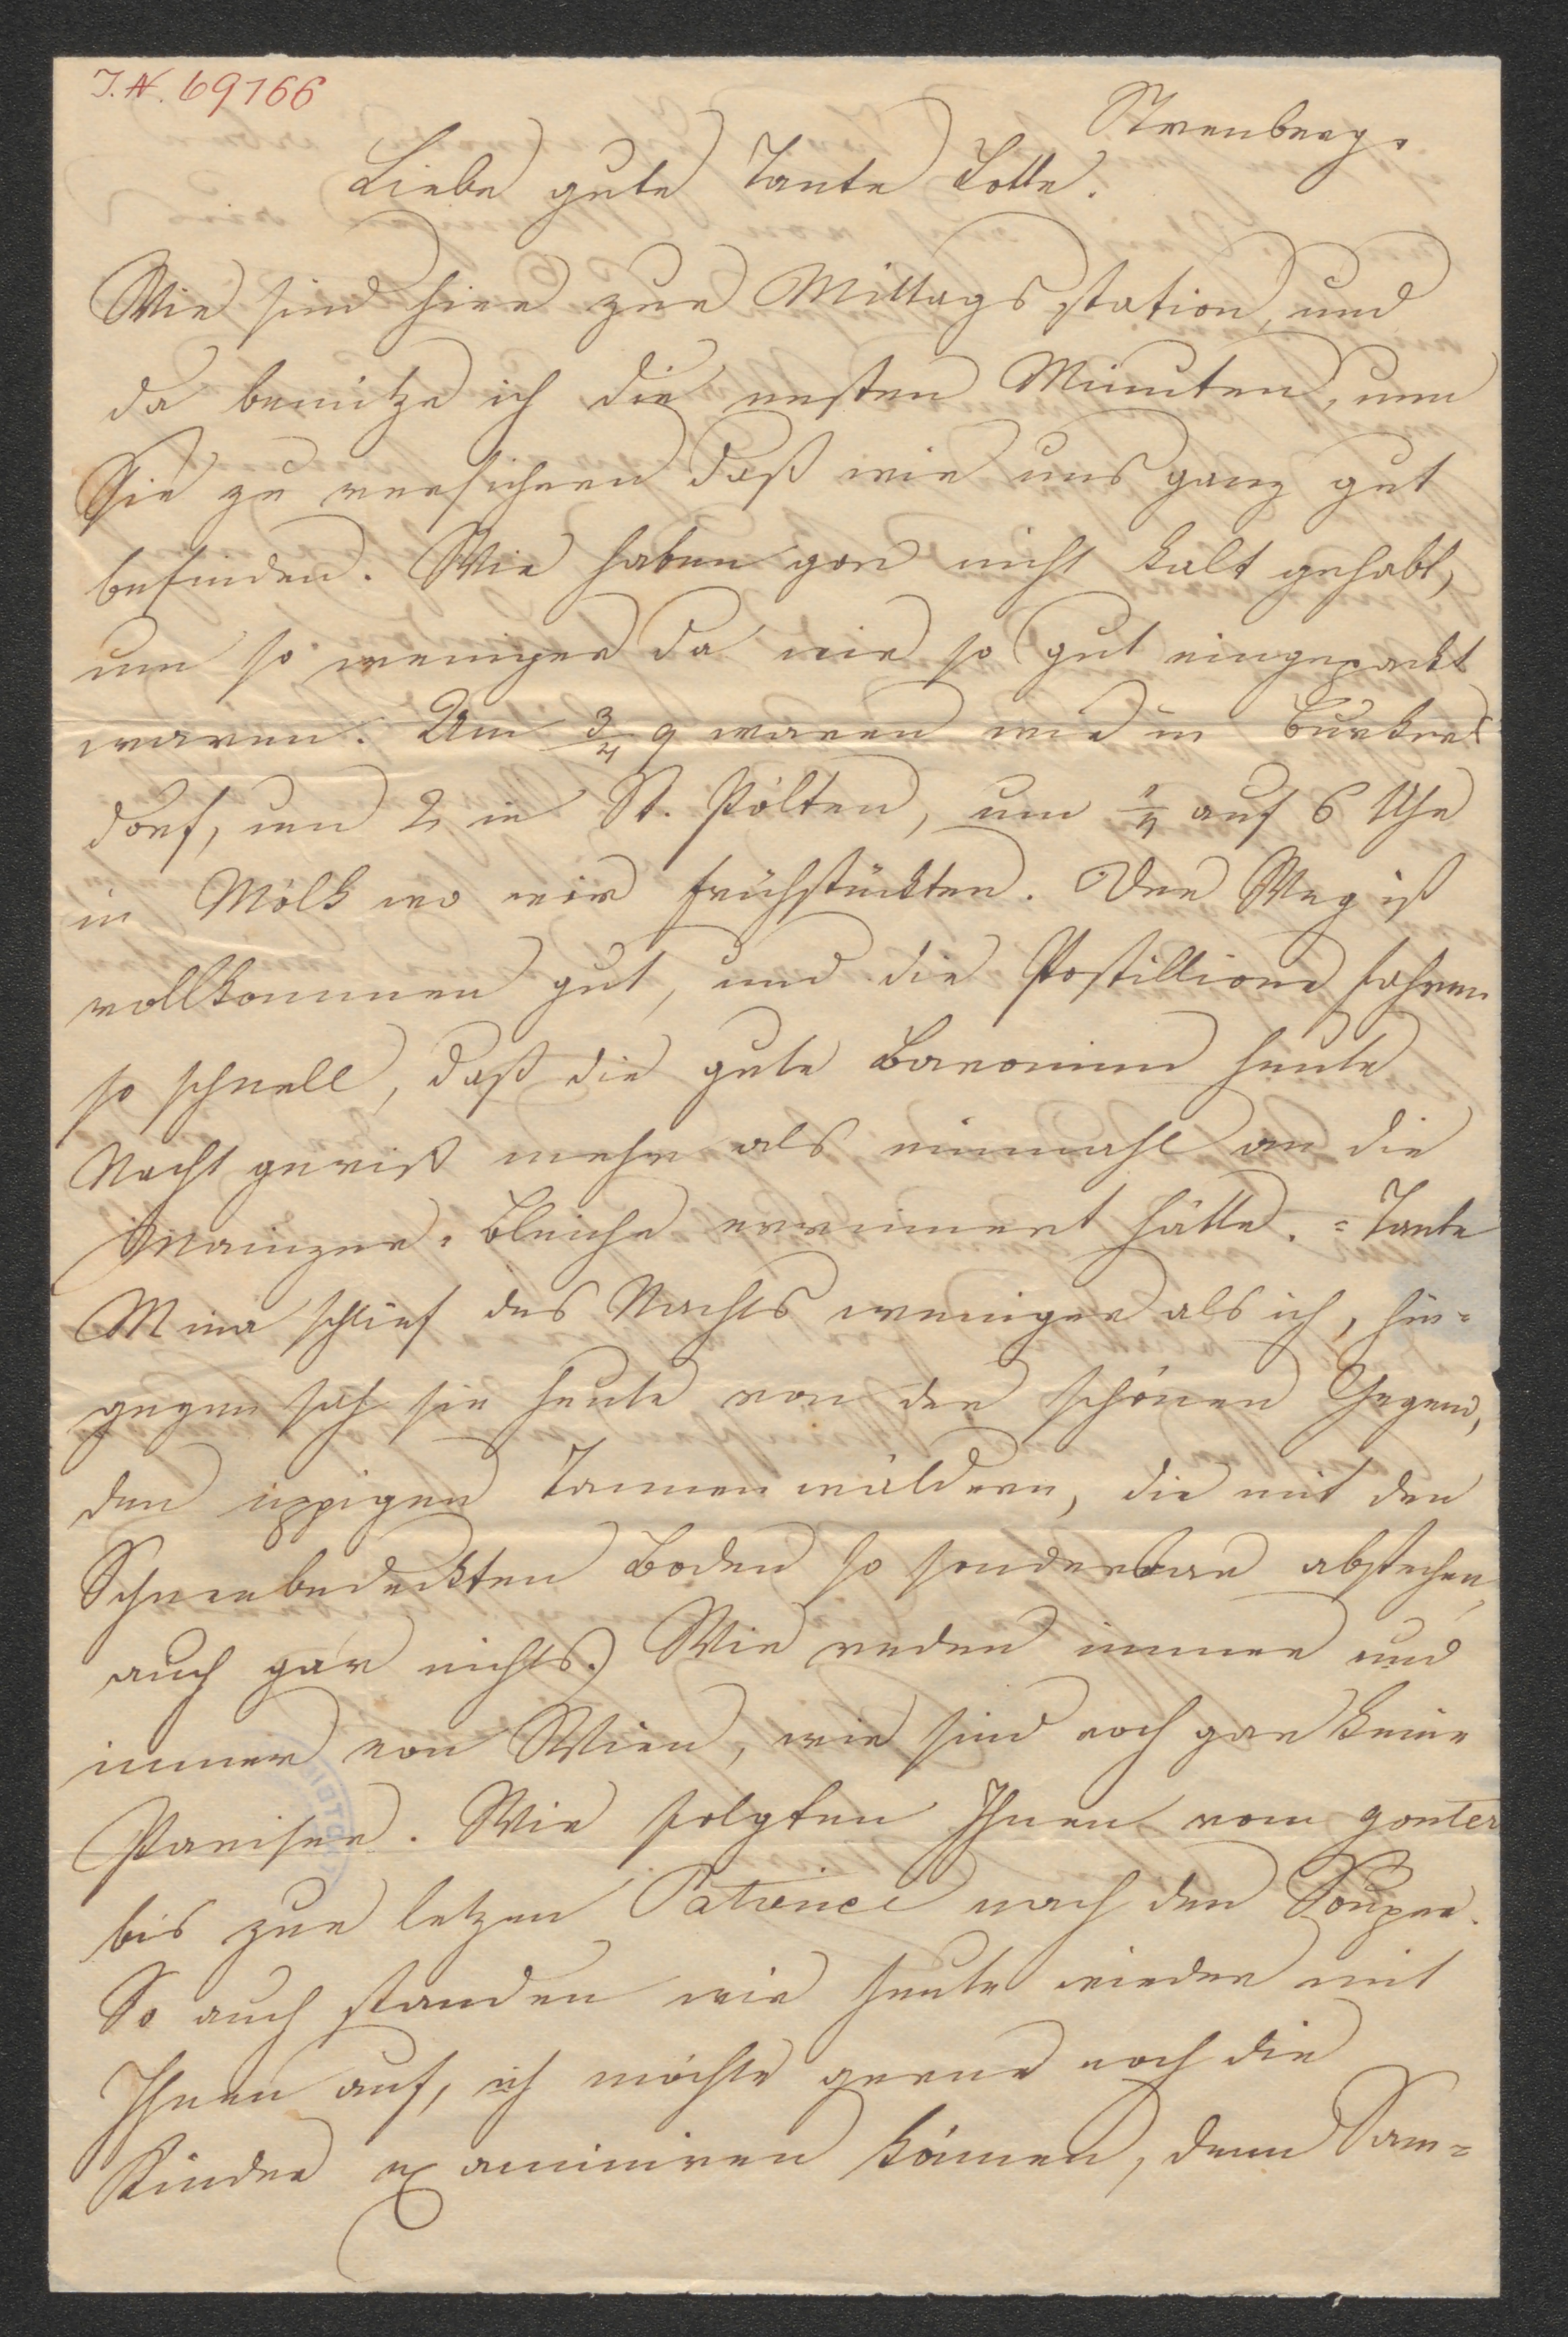 J.N. 69166
Strenberg.
Liebe gute Tante Lotte.
Wir sind hier zur Mittagsstation, und
da benütze ich die ersten Minuten, um
Sie zu versichern daß wir uns ganz gut
befinden. Wir haben gar nicht kalt gehabt,
um so weniger da wir so gut eingepackt
waren. Um 3/4 9 waren wir in Burkers
dorf, um 2 in St. Pölten, um 1/4 auf 6 Uhr
in Mölk wo wir frühstückten. Der Weg ist
vollkommen gut, und die Postillione fahren
so schnell, daß die gute Baroninn heute
Nacht gewiß mehr als einmahl an die
Mainzer-Bleiche errinnert hätte. = Tante
Mina schlief des Nachts weniger als ich, hin=
gegen sah sie heute von der schönen Gegend,
den üppigen Tannenwäldern, die mit den
Schneebedeckten Boden so sonderbar abstechen,
auch gar nichts. Wir reden immer und
immer von Wien, wir sind noch gar keine
Pariser. Wir folgten Ihnen vom gouter
bis zur letzen Patience nach den Souper.
So auch standen wir heute wieder mit
Ihnen auf, ich möchte gerne noch die
Kinder examiniren können, denn Sam=